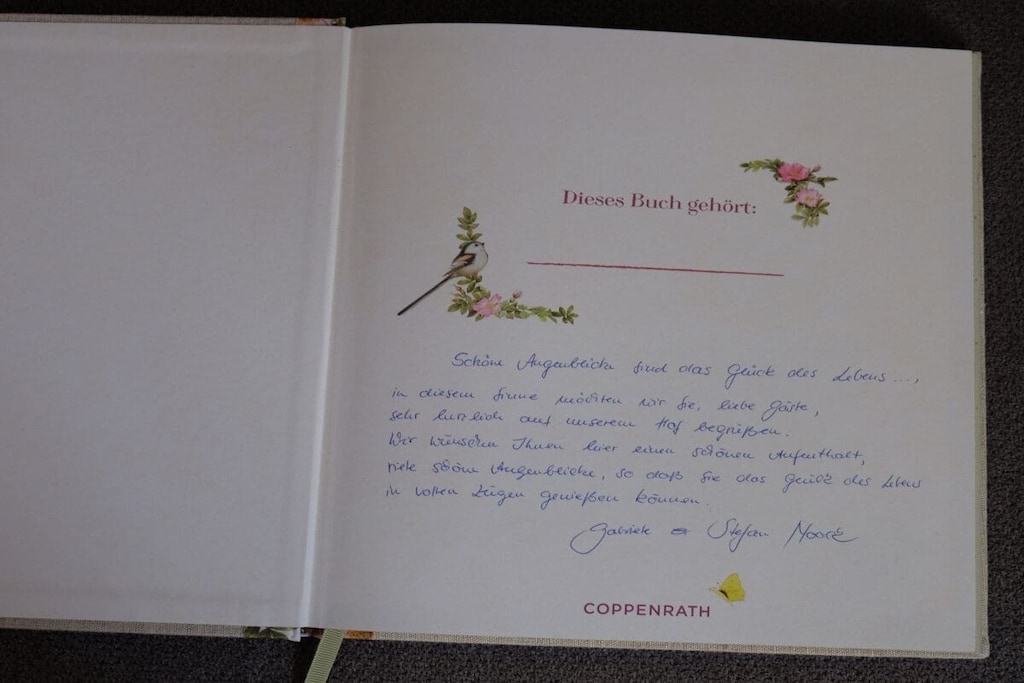 Dieses Buch gehört:
Schöne Augenblicke sind das Glück des Lebens ...,
in diesem Sinne möchten wir Sie, liebe Gäste,
sehr herzlich auf unserem Hof begrüßen.
Wir wünschen Ihnen hier einen schönen Aufenthalt,
viele schöne Augenblicke, so daß Sie das Glück des Lebens
in vollen Zügen genießen können.
Gabriele & Stefan
COPPENRATH